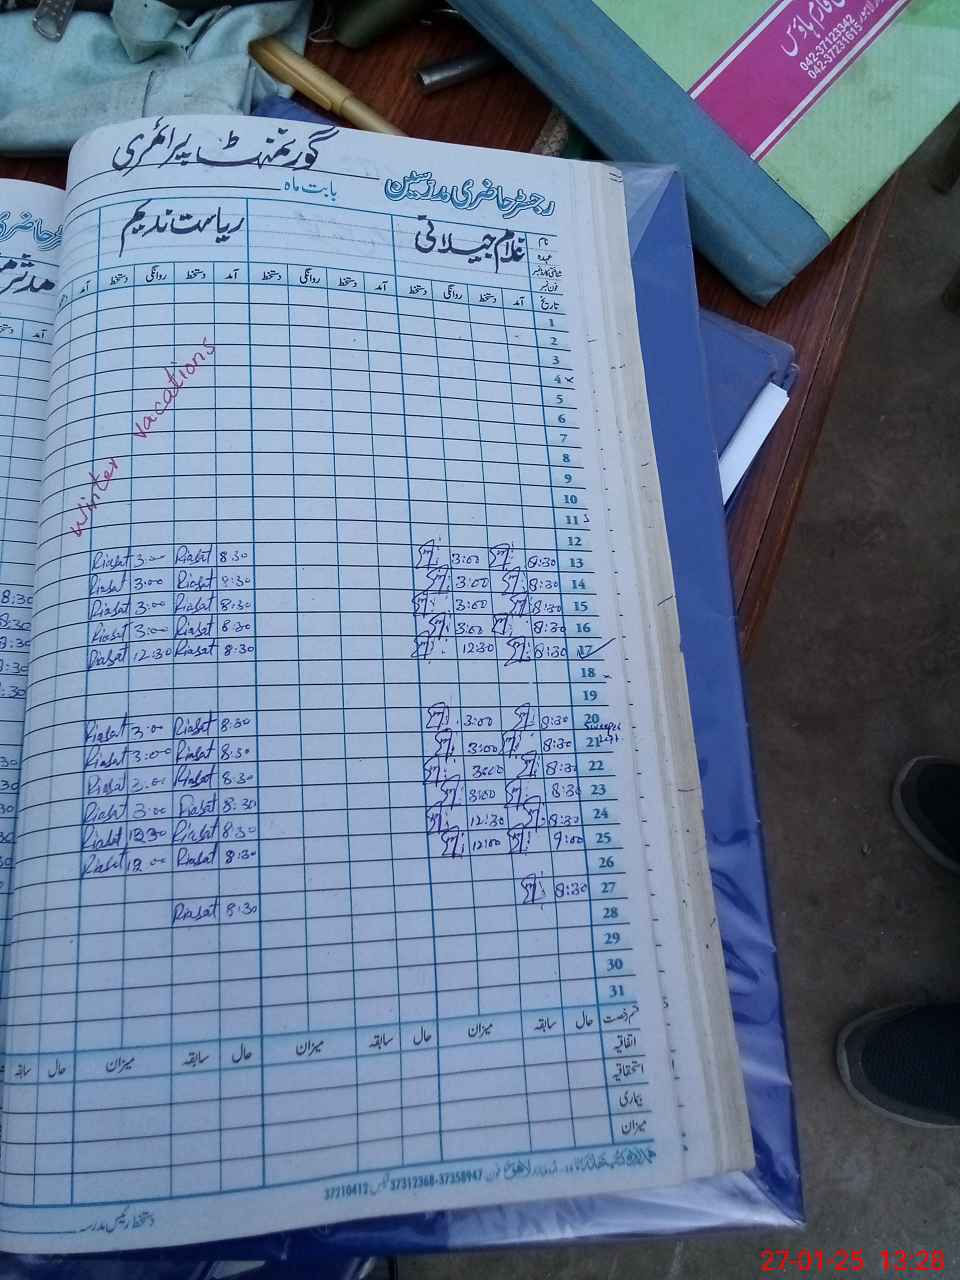 042-37123342
042-37231615
گورنمنٹ پرائمری
رجسٹر حاضری مدرسین بابت ماہ
نام غلام جیلانی ریاست ندیم
عہدہ
تاریخ آمد دستخط روانگی دستخط آمد دستخط روانگی دستخط آمد دستخط روانگی دستخط آمد
1
2
3
4
5
6
7
8
9
10
11
Winter vacations
12
13 8:30 3:00 8:30 Riasat 3:00 Riasat
14 8:30 3:00 8:30 Riasat 3:00 Riasat
15 8:30 3:00 8:30 Riasat 3:00 Riasat
16 8:30 3:00 8:30 Riasat 3:00 Riasat
17 8:30 12:30 8:30 Riasat 12:30 Riasat
18
19
20 8:30 3:00 8:30 Riasat 3:00 Riasat
21 8:30 3:00 8:30 Riasat 3:00 Riasat
22 8:30 3:00 8:30 Riasat 3:00 Riasat
23 8:30 3:00 8:30 Riasat 3:00 Riasat
24 8:30 12:30 8:30 Riasat 12:30 Riasat
25 9:00 12:00 8:30 Riasat 12:00 Riasat
26
27 8:30 8:30 Riasat
28
29
30
31
قسم رخصت حال سابقہ میزان حال سابقہ میزان حال سابقہ میزان حال سابقہ
اتفاقیہ
استحقاقیہ
بیماری
میزان
فون 37358947-37312368 فیکس 37210412
دستخط رئیس مدرسہ
27-01-25 13:28